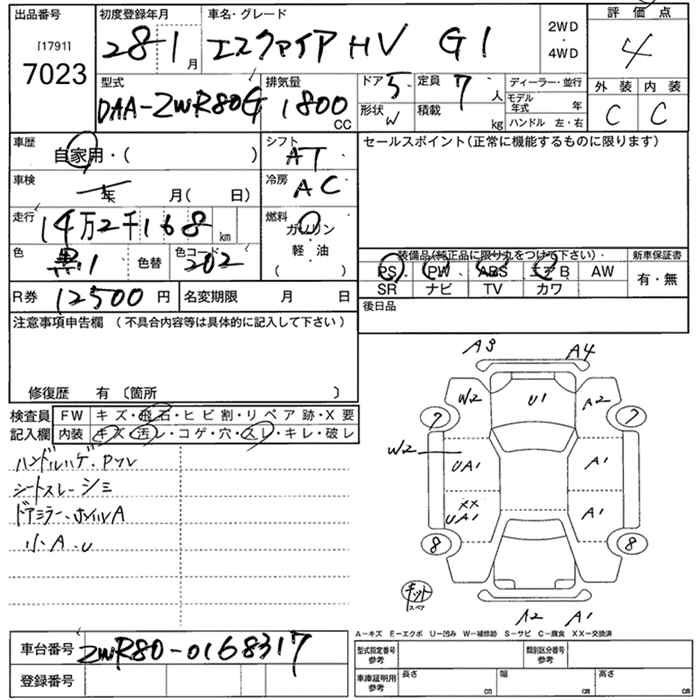 出品番号 初度登録年月 車名・グレード 2WD・4WD 評価点
[1791]
7023
28 1 月 エスクァイア HV G1 4
型式 排気量 ドア 5 定員 7 人 ディーラー・並行 外装 内装
DAA-ZWR80G 1800 CC 形状 W 積載 kg モデル年式 年 C C
ハンドル 左・右
車歴 自家用・( ) シフト AT セールスポイント(正常に機能するものに限ります)
車検 年 月( 日) 冷房 AC
走行 14万2千168 km 燃料 ガソリン
軽・油
( )
色 黒1 色替 色コード 202
装備品(純正品に限り丸をつけて下さい) 新車保証書
PS PW ABS エアB AW 有・無
SR ナビ TV カワ
R券 12500 円 名変期限 月 日 後日品
注意事項申告欄 (不具合内容等は具体的に記入して下さい)
修復歴 有 〔箇所 〕
検査員 FW キズ・飛石・ヒビ割・リペア跡・X要
記入欄 内装 キズ・汚レ・コゲ・穴・スレ・キレ・破レ
ハンドルハゲ・
シートスレ・シミ
ドアミラー・ホイルA
小A.U
A3 A4
W2 U1 A2
7 7
W2 UA1 A1
XX
UA1 A1
8 8
キット
スペア
A2 A1
A-キズ E-エクボ U-凹み W-補修跡 S-サビ C-腐食 XX-交換済
車台番号 ZWR80-0168317
登録番号
型式指定番号 参考 類別区分番号 参考
車庫証明用 参考 長さ cm 幅 cm 高さ cm